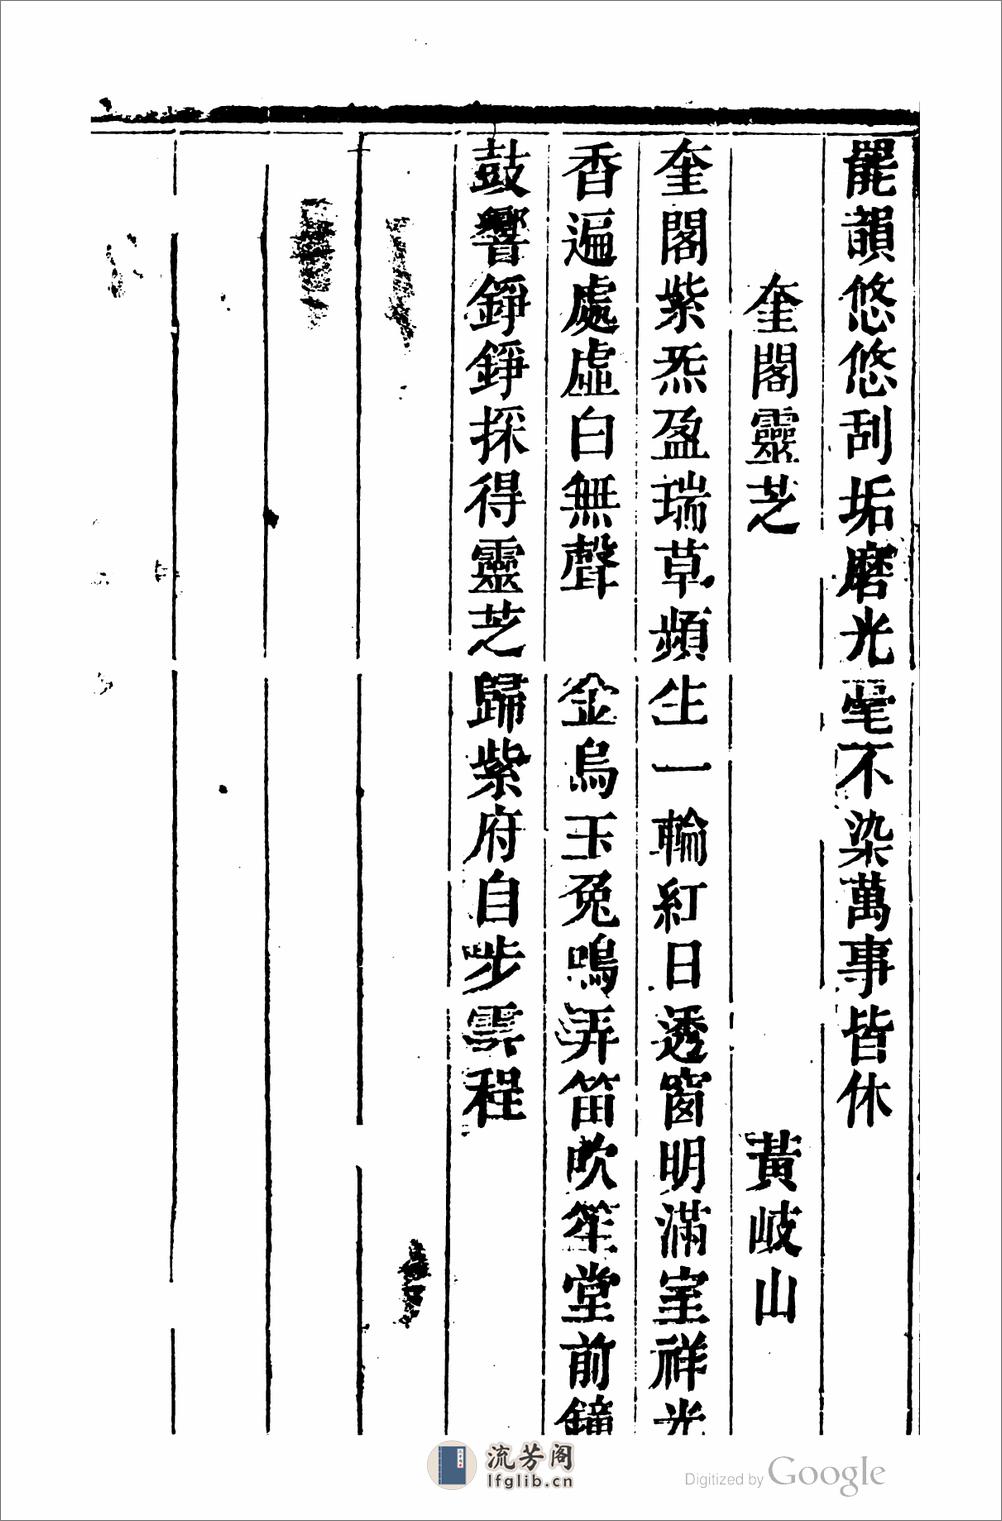 罷韻悠悠刮垢磨光毫不染萬事皆休
奎閣靈芝 黃岐山
奎閣紫炁盈瑞草頻生一輪紅日透窗明滿室祥光
香遍處虛白無聲 金烏玉兔鳴弄笛吹笙堂前鐘
鼓響錚錚採得靈芝歸紫府自步雲程
流芳阁
lfglib.cn
Digitized by Google